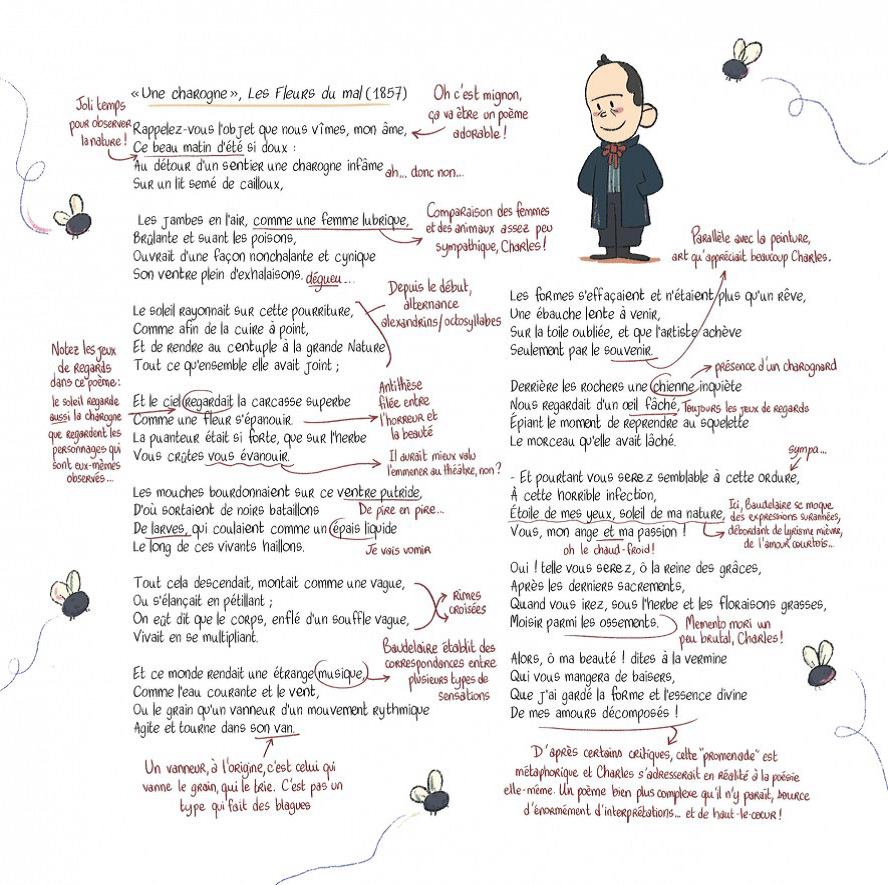 « Une charogne », Les Fleurs du mal (1857)
Joli temps
pour observer
la nature !
Oh c'est mignon,
ça va être un poème
adorable !
Rappelez-vous l'objet que nous vîmes, mon âme,
Ce beau matin d'été si doux :
Au détour d'un sentier une charogne infâme
Sur un lit semé de cailloux,
ah... donc non...
Les jambes en l'air, comme une femme lubrique,
Brûlante et suant les poisons,
Ouvrait d'une façon nonchalante et cynique
Son ventre plein d'exhalaisons.
dégueu...
Comparaison des femmes
et des animaux assez peu
sympathique, Charles !
Le soleil rayonnait sur cette pourriture,
Comme afin de la cuire à point,
Et de rendre au centuple à la grande Nature
Tout ce qu'ensemble elle avait joint ;
Depuis le début,
alternance
alexandrins/octosyllabes
Notez les jeux
de regards
dans ce poème :
le soleil regarde
aussi la charogne
que regardent les
personnages qui
sont eux-mêmes
observés...
Et le ciel regardait la carcasse superbe
Comme une fleur s'épanouir.
La puanteur était si forte, que sur l'herbe
Vous crûtes vous évanouir.
Antithèse
filée entre
l'horreur et
la beauté
Il aurait mieux valu
l'emmener au théâtre, non ?
Les mouches bourdonnaient sur ce ventre putride,
D'où sortaient de noirs bataillons
De larves, qui coulaient comme un épais liquide
Le long de ces vivants haillons.
De pire en pire...
Je vais vomir
Tout cela descendait, montait comme une vague,
Ou s'élançait en pétillant ;
On eût dit que le corps, enflé d'un souffle vague,
Vivait en se multipliant.
Rimes
croisées
Baudelaire établit des
correspondances entre
plusieurs types de
sensations
Et ce monde rendait une étrange musique,
Comme l'eau courante et le vent,
Ou le grain qu'un vanneur d'un mouvement rythmique
Agite et tourne dans son van.
Un vanneur, à l'origine, c'est celui qui
vanne le grain, qui le trie. C'est pas un
type qui fait des blagues
Parallèle avec la peinture,
art qu'appréciait beaucoup Charles.
Les formes s'effaçaient et n'étaient plus qu'un rêve,
Une ébauche lente à venir,
Sur la toile oubliée, et que l'artiste achève
Seulement par le souvenir.
présence d'un charognard
Derrière les rochers une chienne inquiète
Nous regardait d'un œil fâché,
Épiant le moment de reprendre au squelette
Le morceau qu'elle avait lâché.
Toujours les jeux de regards
sympa...
- Et pourtant vous serez semblable à cette ordure,
À cette horrible infection,
Étoile de mes yeux, soleil de ma nature,
Vous, mon ange et ma passion !
oh le chaud-froid !
Ici, Baudelaire se moque
des expressions surannées,
débordant de lyrisme mièvre,
de l'amour courtois...
Oui ! telle vous serez, ô la reine des grâces,
Après les derniers sacrements,
Quand vous irez, sous l'herbe et les floraisons grasses,
Moisir parmi les ossements.
Memento mori un
peu brutal, Charles !
Alors, ô ma beauté ! dites à la vermine
Qui vous mangera de baisers,
Que j'ai gardé la forme et l'essence divine
De mes amours décomposés !
D'après certains critiques, cette "promenade" est
métaphorique et Charles s'adresserait en réalité à la poésie
elle-même. Un poème bien plus complexe qu'il n'y paraît, source
d'énormément d'interprétations... et de haut-le-cœur !